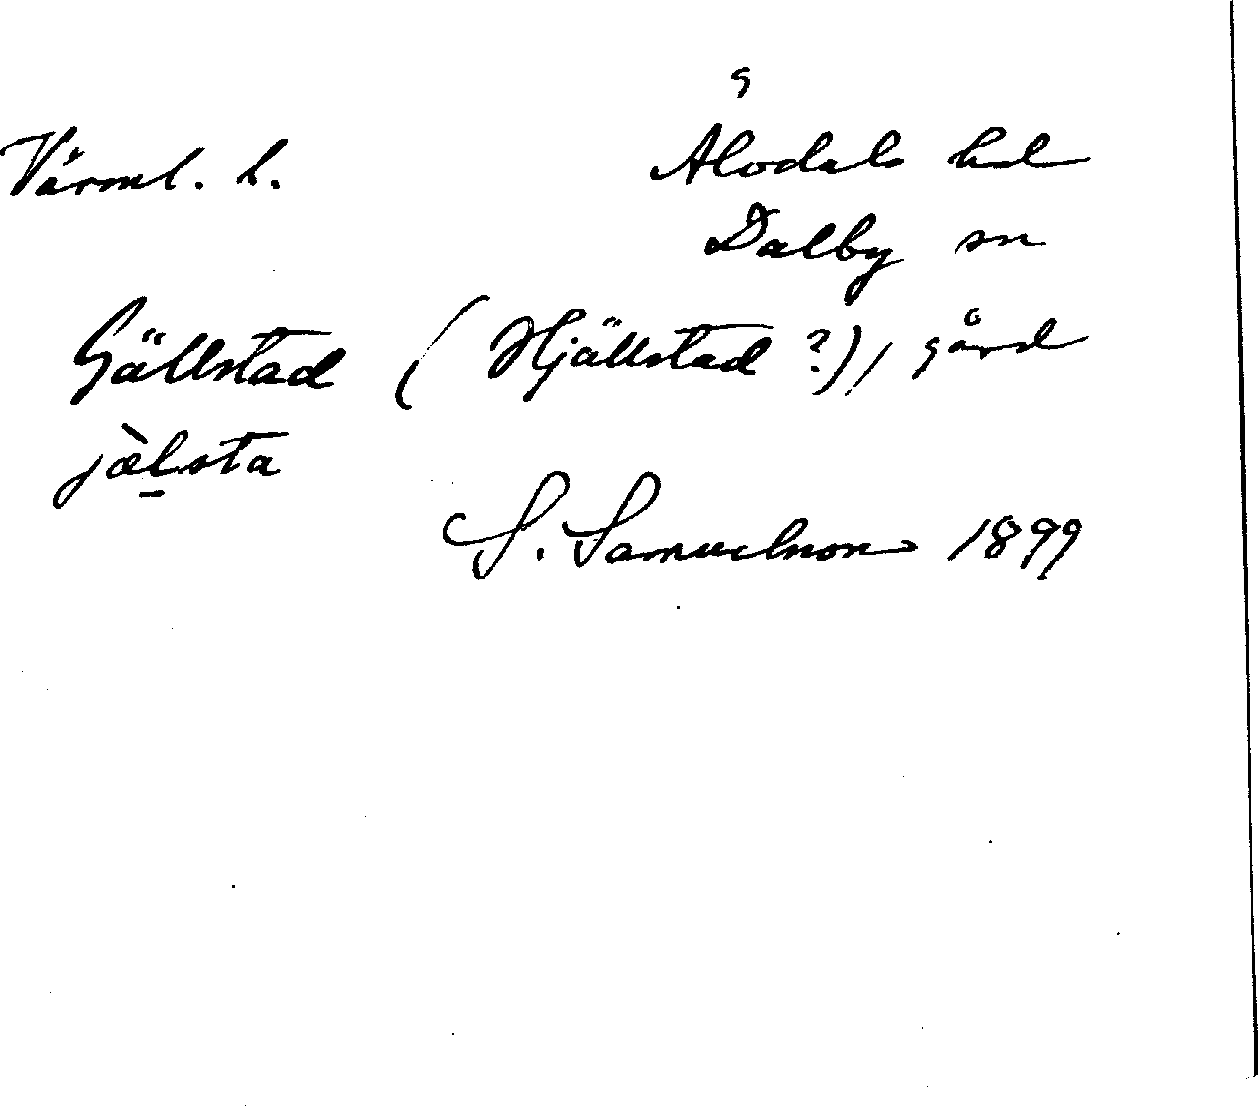 s
Värml. l. Älvdals hd
Dalby sn
Gällstad (Hjällstad ?), gård
jə̀l̠sta
S. Samuelson 1899